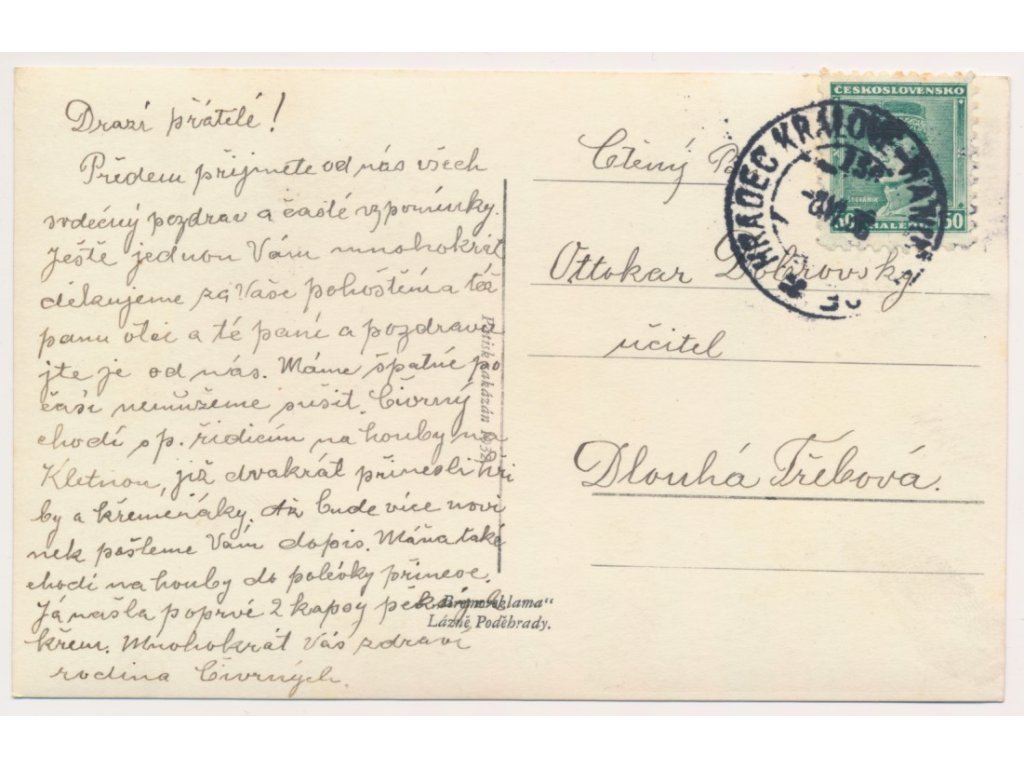 Drazí přátelé!
Předem přijmete od nás všech
srdečný pozdrav a časté vzpomínky.
Ještě jednou Vám mnohokrát
děkujeme za Vaše pohoštění a též
panu otci a té paní a pozdravu
jte je od nás. Máme špatné po
časí nemůžeme sušit. Čivrný
chodí s p. řidicím na houby na
Kletnou, již dvakrát přinesli hři
by a křemeňáky. Až bude více novi
nek pošleme Vám dopis. Máňa také
chodí na houby do polévky přinese.
Já našla poprvé 2 kapsy
křem. Mnohokrát Vás zdraví
rodina Čivrných.
Přetisk zakázán 1932
"Bromografia"
Lázně Poděbrady.
ČESKOSLOVENSKO
ŠTEFÁNIK
50
HRADEC KRÁLOVÉ
Ctěný
Ottokar Dobrovský
učitel
Dlouhá Třebová.